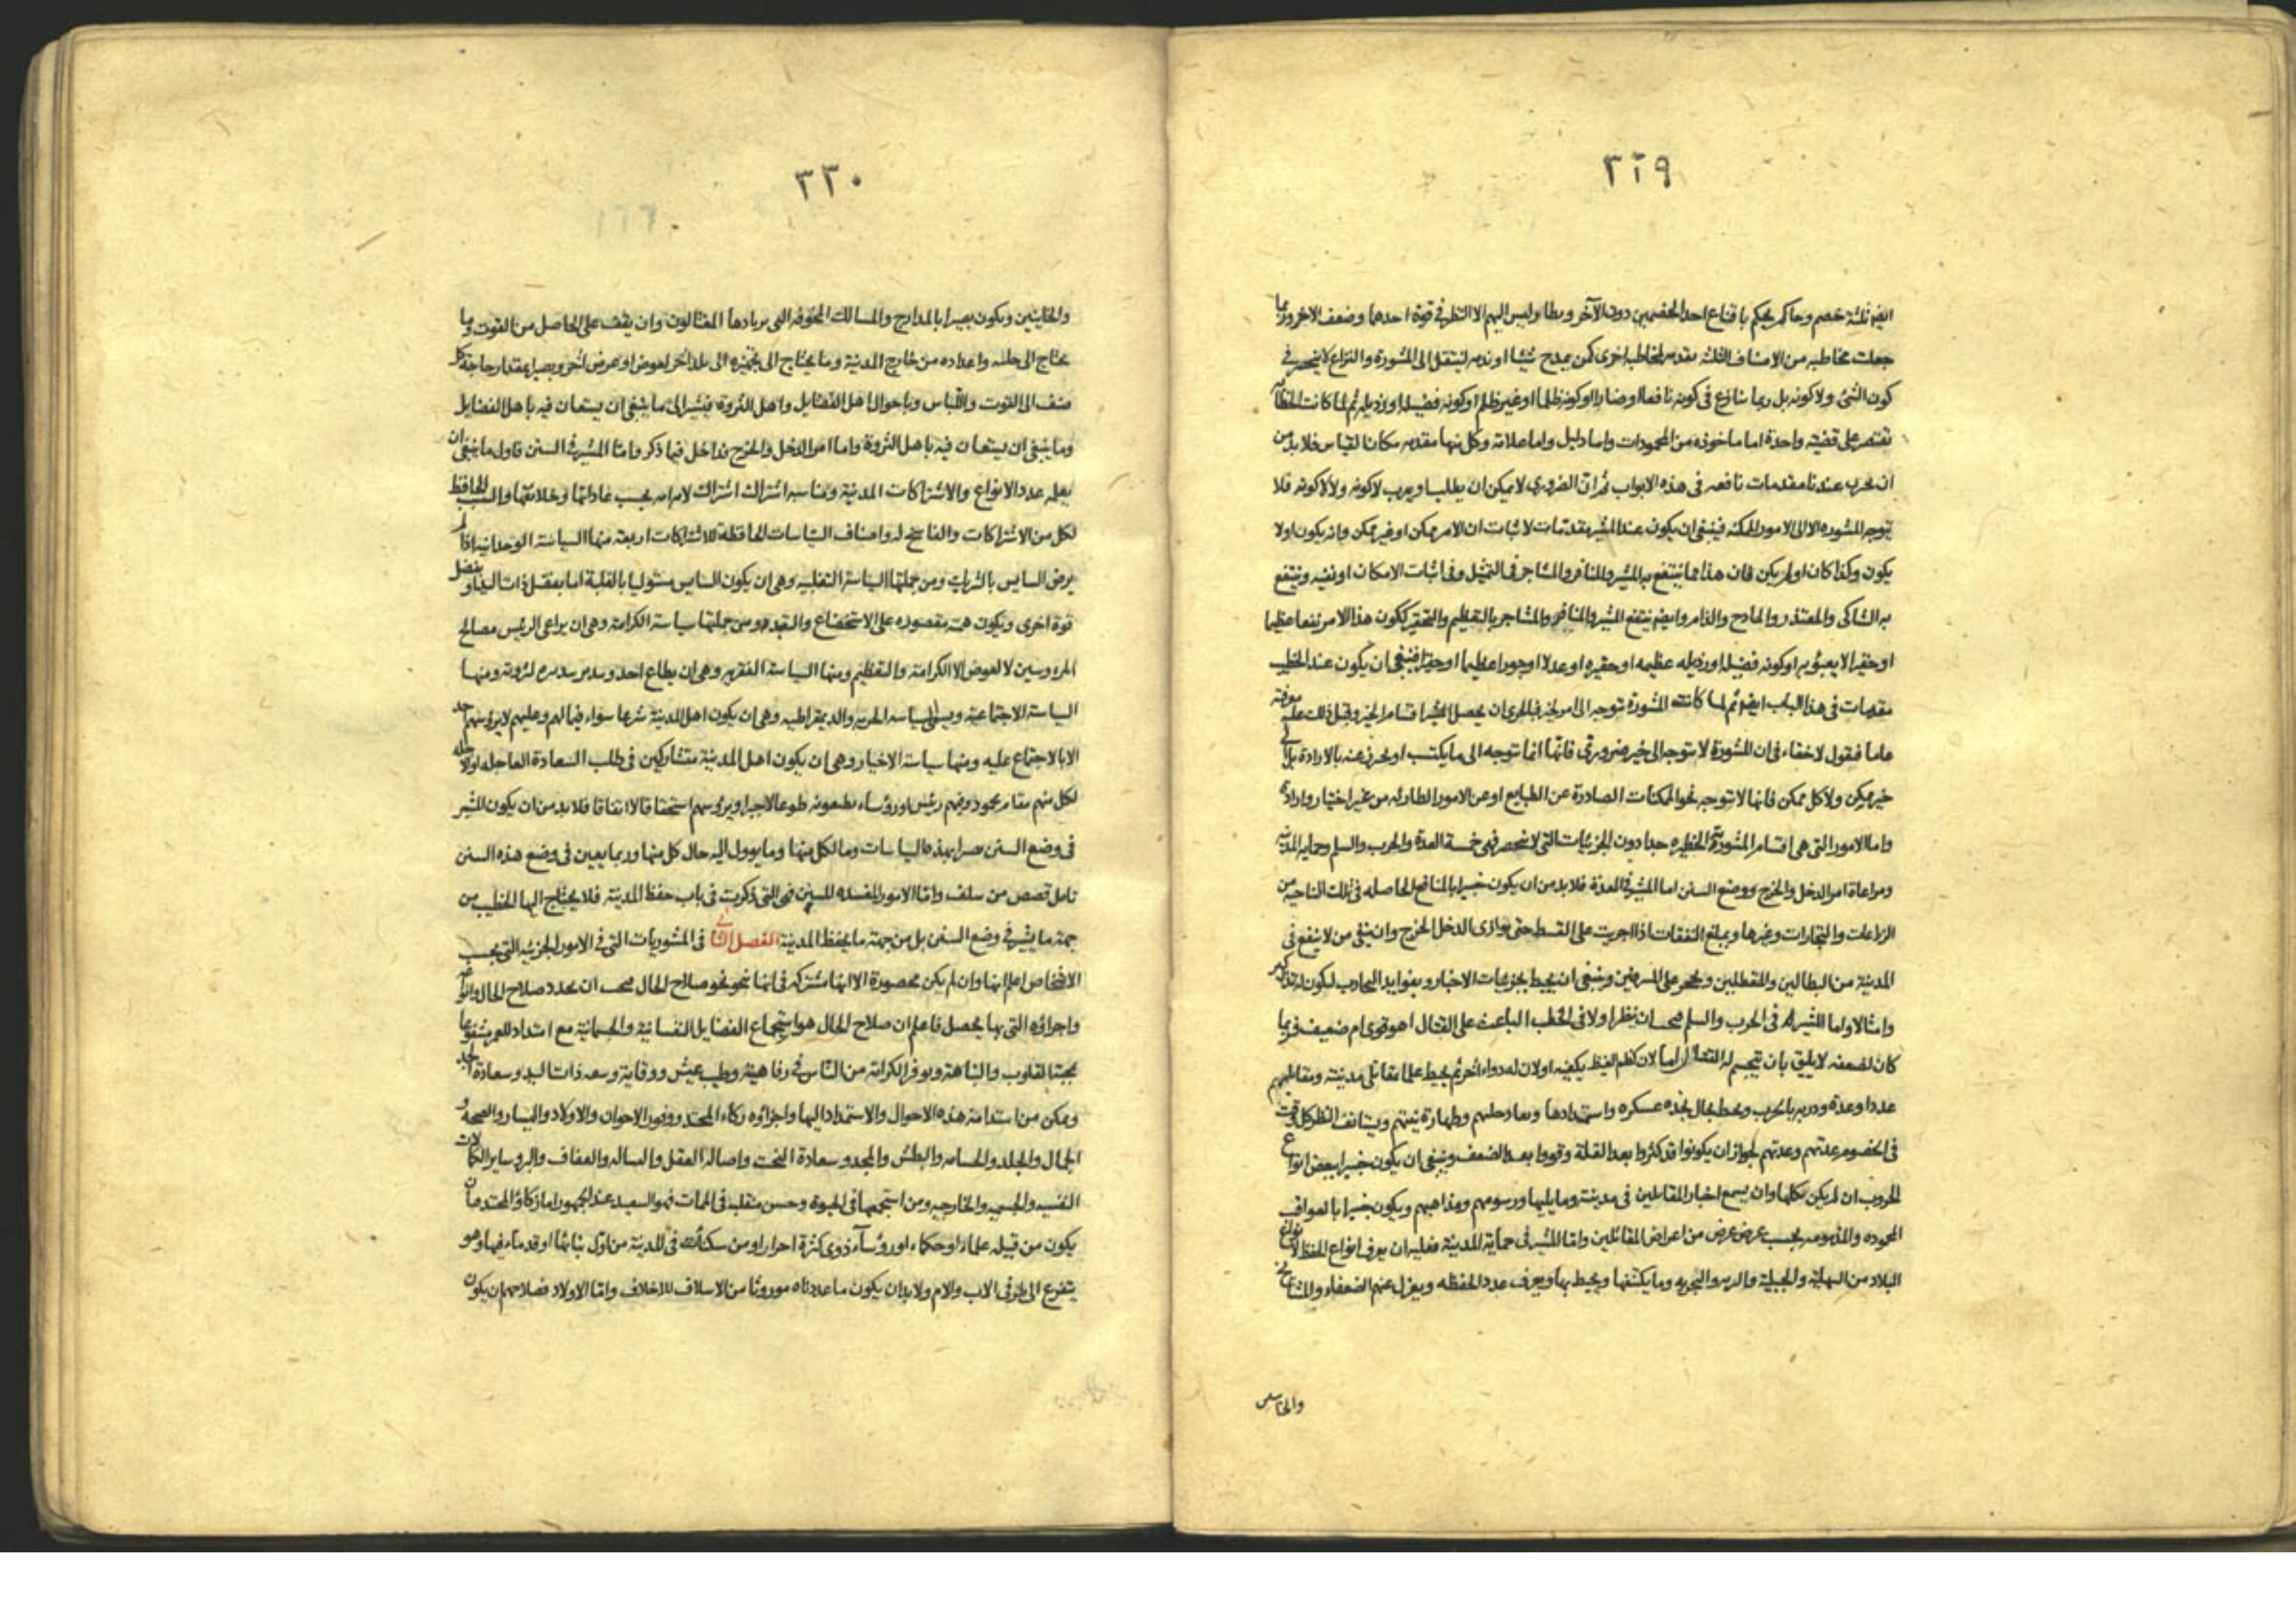 ٣٢٩
ايضا ثلثة خصم وحاكم يحكم باقناع احد الخصمين دون الآخر ونظار وليس اليهم الا النظر في قوة احدهما وضعف الاخر وربما
جعلت مخاطبه من الاصناف الثلثه مقدمه لمخاطبه اخرى كمن يمدح شيئا او يذمه لينتقل الى المشورة والنزاع لا ينحصر في
كون الشئ ولا كونه بل ربما تنازع في كونه نافعا او ضارا او كونه ظلما او غير ظلم او كونه فضيله او رذيله ثم لما كانت الخطابه
تقتصر على قضية واحدة اما ماخوذه من المحمودات واما دليل واما علامة وكل منها مقدمه مكان القياس فلابد من
ان محرب عندنا مقدمات نافعه في هذه الابواب ثم ان الضروري لا يمكن ان يطلب او يهرب لا كونه ولا لا كونه فلا
توجه المشوره الا الى الامور الممكنه فينبغي ان يكون عند المشير مقدمات لاثبات ان الامر ممكن او غير ممكن وانه يكون او لا
يكون وكذا كان او لم يكن فان هذا مما ينتفع به المشير والمنافر والمشاجر في التمثيل وفي اثبات الامكان او نفيه وينتفع
به الشاكى والمعتذر والمادح والذام وايضا ينتفع المشير والمنافر والمشاجر بالتعظيم والتحقير ككون هذا الامر نفعا عظيما
او حقيرا لا يعبؤ به او كونه فضيله او رذيله عظيمه او حقيره او عدلا او جورا عظيما او حقيرا فينبغي ان يكون عند الخطيب
مقدمات في هذا الباب ايضا ثم لما كانت المشورة توجه الى امر خير فبالحرى ان يحصل المشير اقسام الخير وقبل ذلك عليه معرفته
عاما فنقول لا خفاء في ان المشورة لا توجه الى خير ضرورى فانها انما توجه الى ما يكتسب او يحرز عنه بالارادة بل الى
خير ممكن ولا كل ممكن فانها لا تتوجه نحو الممكنات الصادرة عن الطبايع او عن الامور الطارئه من غير اختيار وارادة
واما الامور التي هي اقسام المشوريه الخطيره جدا دون الجزئيات التي لا تنحصر فهي خمسة العدة والحرب والسلم وحماية المدينه
ومراعاة امر الدخل والخرج ووضع السنن اما المشير في العدة فلابد من ان يكون خبيرا بالمنافع الحاصله في تلك الناحيه من
الزراعات والتجارات وغيرها وبمبلغ النفقات اذا اجريت على القسط حتى يوازى الدخل الخرج وان ينفى من لا ينفع في
المدينة من البطالين والمتعطلين ويحجر على المسرفين وينبغي ان يحيط بجزئيات الاخبار وبفوايد التجارب لتكون له تذكير
وامثالا واما المشير في الحرب والسلم فيجب ان ينظر اولا في الخطب الباعث على القتال اهو قوى ام ضعيف فربما
كان لضعفه لا يليق بان يتجشم له القتال اما لان كظم الغيظ يكفيه او لان له دواء اخر ثم يحيط علما بمقاتلى مدينته ومقابليهم
عددا وعدة ودربة بالحرب ويحط بحال نجده عسكره واستمدادها ومعادلتهم وطهارة نيتهم ويستانف النظر كل وقت
في الخصوم عدتهم وعدتهم لجواز ان يكونوا قد كثروا بعد القلة وقووا بعد الضعف وينبغي ان يكون خبيرا ببعض انواع
الحروب ان لم يكن بكلها وان يسمع اخبار المقاتلين في مدينته وما يليها ورسومهم ومذاهبهم ويكون خبيرا بالعواقب
المحموده والمذمومه بحسب غرض غرض من اغراض المقاتلين واما المشير في حماية المدينة فعليه ان يعرف انواع الحفظ لانواع
البلاد من السهلية والجبلية والبريه والبحريه وما يكتنفها ويحيط بها ويعرف عدد الحفظه ويعزل عنهم الضعفاء والمشايخ
والخاينين
٣٣٠
والخاينين ويكون بصيرا بالمدارج والمسالك المخوفه التي يرتادها المغتالون وان يقف على الحاصل من القوت وما
يحتاج الى جلبه واعداده من خارج المدينة وما يحتاج الى تجهيزه الى بلد اخر لعوض او عرض اخر وبصيرا بمقدار حاجة كل
صنف الى القوت واللباس وباحوال اهل الفضايل واهل الثروة فيشير الى ما ينبغي ان يستعان فيه باهل الفضايل
وما ينبغي ان يستعان فيه باهل الثروة واما امر الدخل والخرج فداخل فيما ذكر واما المشير في السنن فاول ما ينبغي ان
يعلمه عدد الانواع والاشتراكات المدنية ومناسبه اشتراك اشتراك لامه امه بحسب عاداتها وخلايقها والسبب الحافظ
لكل من الاشتراكات والفاسخ له واصناف السياسات الحافظة للاشتراكات اربعة منها السياسة الوحدانية اذا لم
يرض السايس بالشريك ومن جملتها السياسة التغلبيه وهي ان يكون السايس مستوليا بالغلبة اما بفضل ذات اليد او بفضل
قوة اخرى ويكون همته مقصوره على الاستخضاع والتعبد ومن جملتها سياسة الكرامة وهي ان يراعى الرئيس مصالح
المرءوسين لا لعوض الا الكرامة والتعظيم ومنها السياسة الفقريه وهي ان يطاع احد لثروته ومنها
السياسة الاجتماعية ويسمى السياسه الحريه والديمقراطيه وهي ان يكون اهل المدينة شرعا سواء فيما لهم وعليهم لا يرؤسهم احد
الا بالاجتماع عليه ومنها سياسة الاخيار وهي ان يكون اهل المدينة متشاركين في طلب السعادة العاجله والاجله
لكل منهم مقام محمود وفيهم رئيس او رؤساء يطيعونه طوعا لا جبرا ويرؤسهم استحقاقا لا اتفاقا فلابد من ان يكون المشير
في وضع السنن بصيرا بهذه السياسات وما لكل منها وما يوول اليه حال كل منها وربما يعين في وضع هذه السنن
تامل قصص من سلف واما الامور المفسده للسنن فهي التي ذكرت في باب حفظ المدينة فلا يحتاج اليها الخطيب من
جهة ما يشير في وضع السنن بل من جهة ما يحفظ المدينة الفصل الثاني في المشوريات التي في الامور الجزئيه التي بحسب
الاشخاص اعلم انها وان لم يكن محصورة الا انها مشتركه في انها نحو نحو صلاح الحال فيجب ان يحدد صلاح الحال وانواعه
واجزاؤه التي بها يحصل فاعلم ان صلاح الحال هو استجماع الفضايل النفسانية والجسمانية مع امتداد للعمر مشفوعا
بمحبة القلوب والنباهة وتوفر الكرامة من الناس في رفاهية وطيب عيش ووقاية وسعه ذات اليد وسعادة الجد
وتمكن من استدامة هذه الاحوال والاستمداد اليها واجزاؤه زكاء المحتد ووفور الاخوان والاولاد واليسار والصحة و
الجمال والجلد والجسامه والبطش والمجد وسعادة البخت واصالة العقل والبسالة والعفاف والبر وساير الكمالات
النفسيه والجسميه والخارجيه ومن استجمعها في الحيوة وحسن منقلبه في الممات فهو السعيد عند الجمهور اما زكاؤ المحتد فان
يكون من قبيله علماء او حكماء او رؤساء ذوى كثرة احرار او من سكنائه في المدينة من اول بنائها او قدماء فيها وهو
يتفرع الى طرفي الاب والام ولابد ان يكون ما عددناه موروثا من الاسلاف للاخلاف واما الاولاد فصلاحهم ان يكون